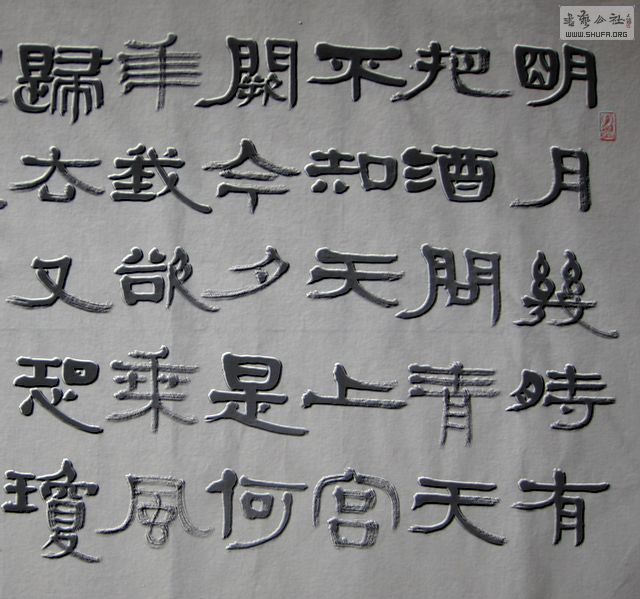 明月幾時有
把酒問青天
不知天上宮
闕今夕是何
年我欲乘風
歸去又恐瓊
WWW.SHUFA.ORG